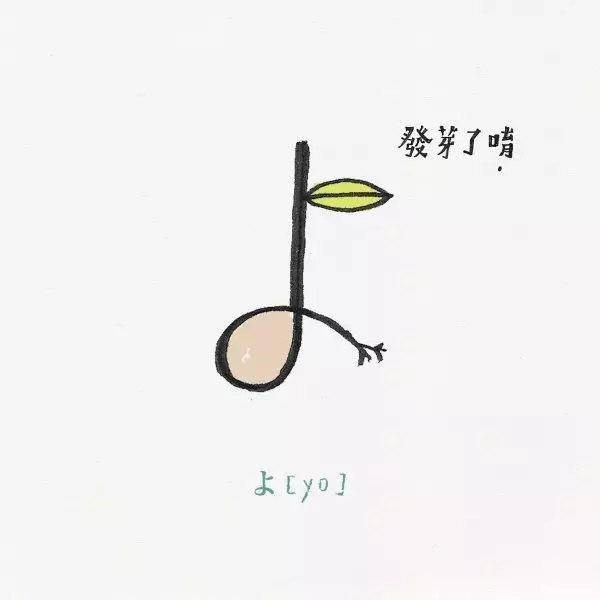 發芽了唷.
よ[yo]